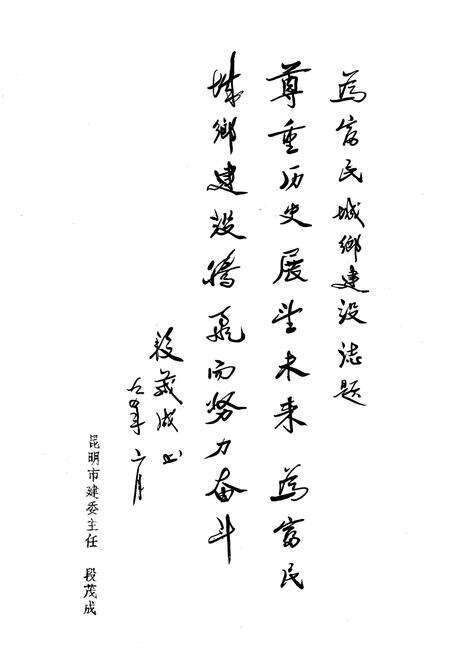 為富民城鄉建设誌题
尊重历史展望未来 為富民
城鄉建设腾飛而努力奋斗
段茂成
年 月
昆明市建委主任 段茂成